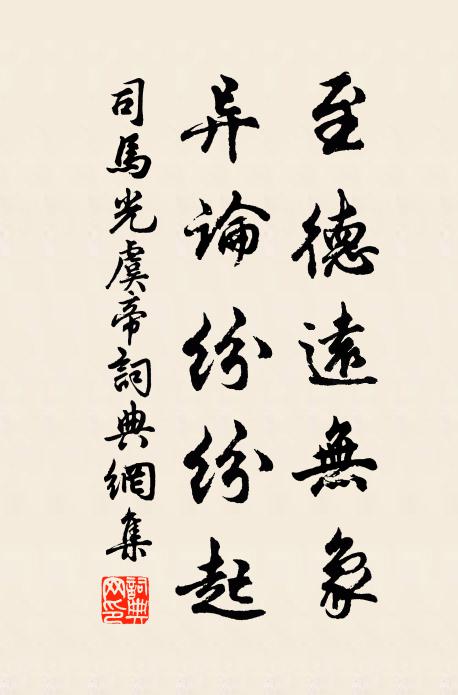 至德遠無象
异論紛紛起
司馬光虞帝詞典網集
詞典網印